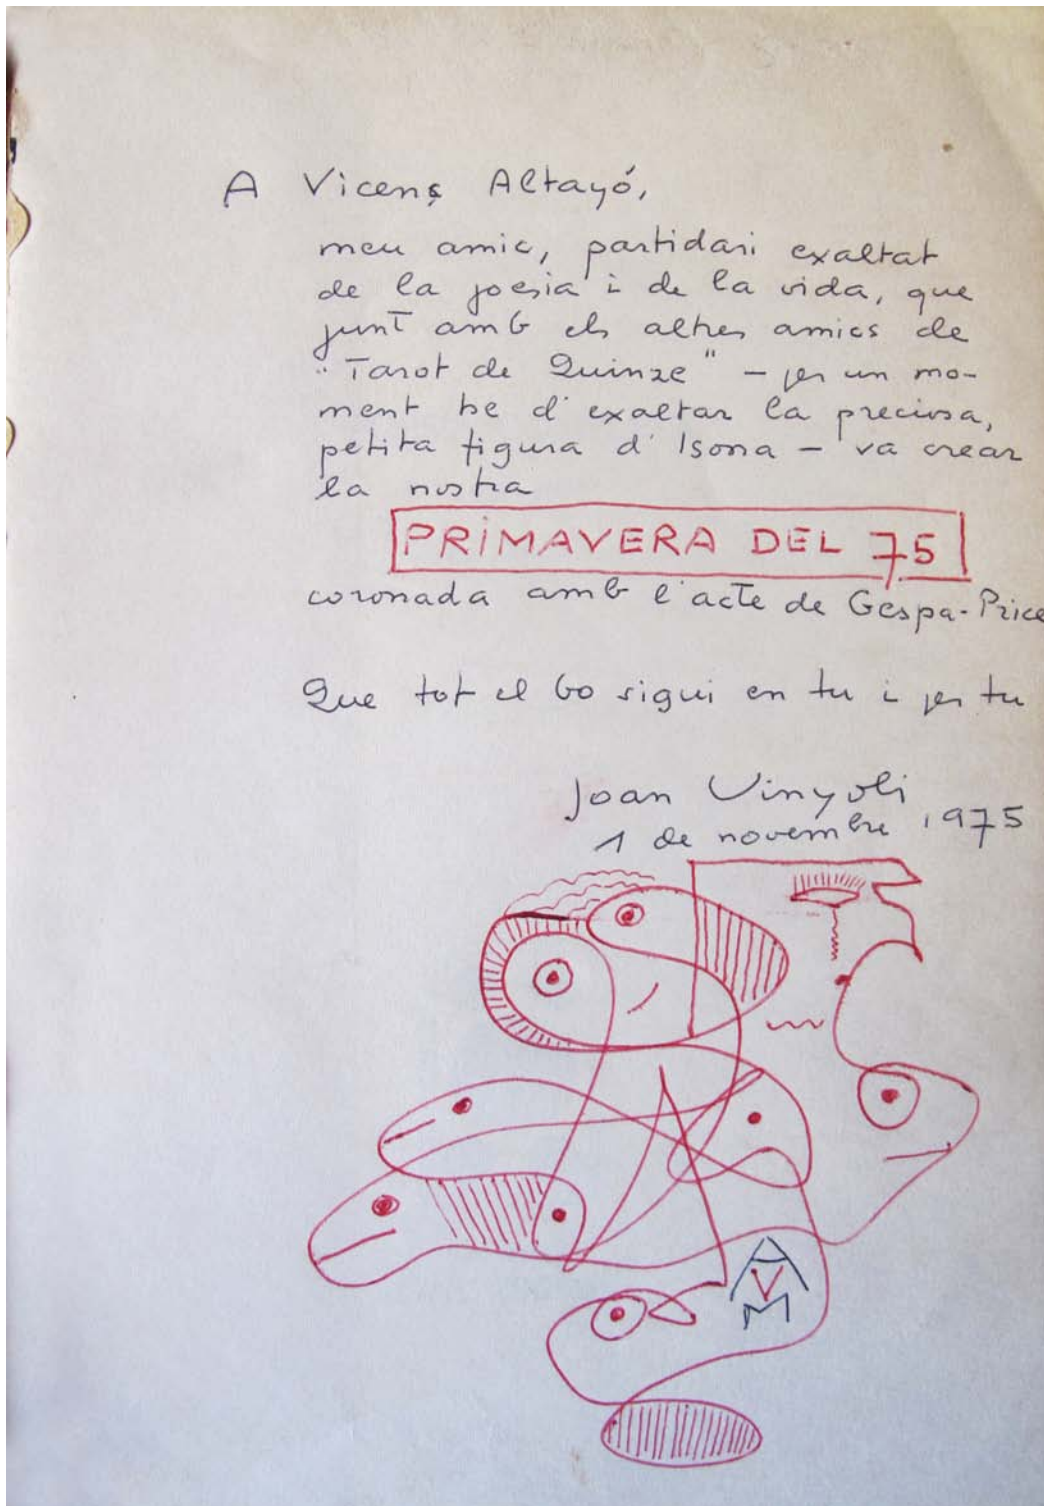 A Vicenç Altayó,
meu amic, partidari exaltat
de la poesia i de la vida, que
junt amb els altres amics de
"Tarot de Quinze" – per un mo-
ment he d'exaltar la preciosa,
petita figura d'Isona – va crear
la nostra
PRIMAVERA DEL 75
coronada amb l'acte de Gespa-Price
Que tot el bo sigui en tu i per tu
Joan Vinyoli
1 de novembre 1975
A
V
M